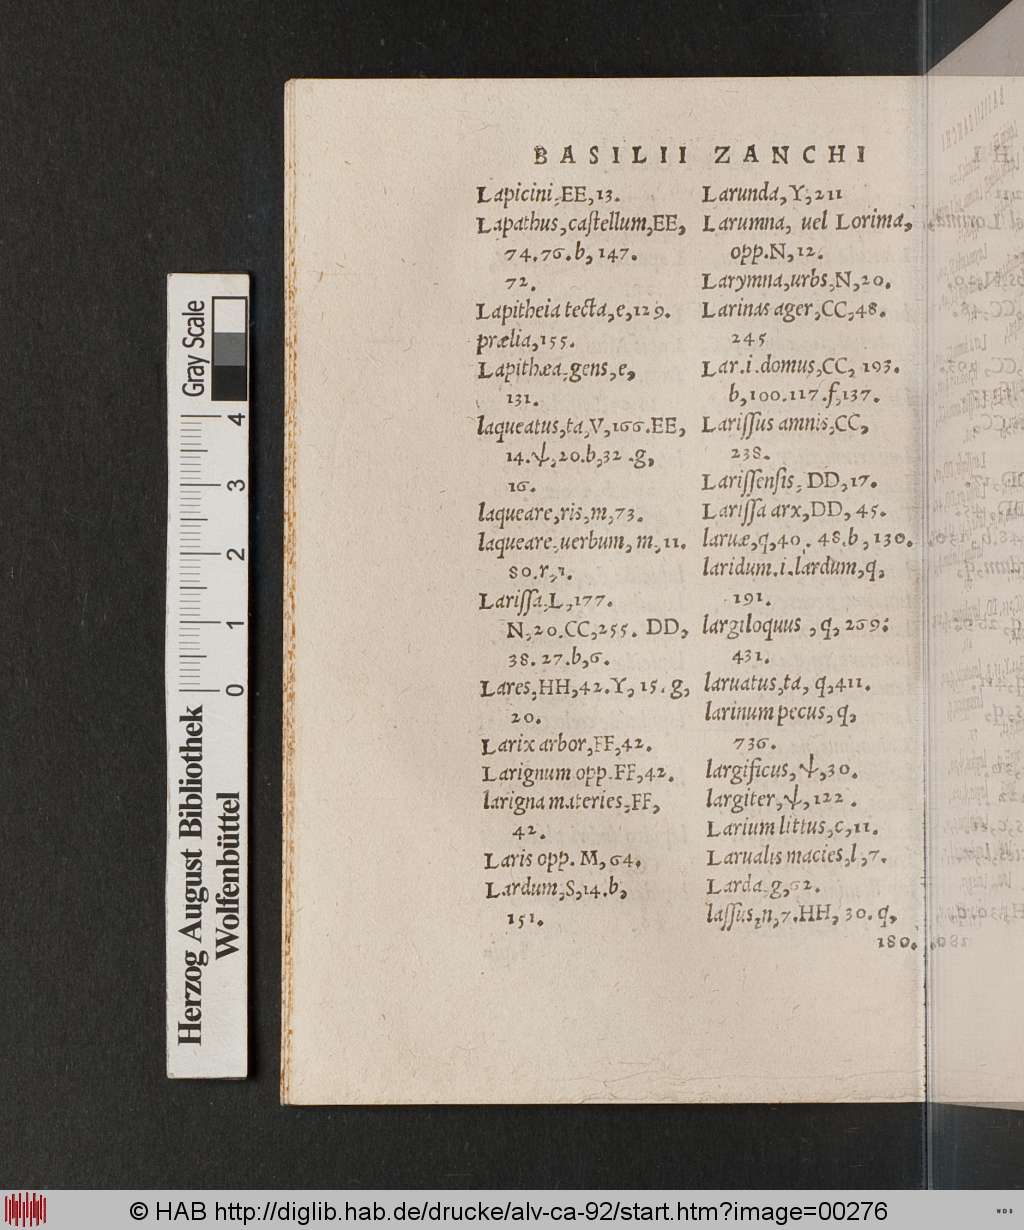 BASILII ZANCHI
Lapicini, EE, 13.
Lapathus, caſtellum, EE,
74. 76. b, 147.
72.
Lapitheia tecta, e, 129.
prælia, 155.
Lapithæa, gens, e,
131.
laqueatus, ta, V, 166. EE,
14. ψ, 20. b, 32. g,
16.
laqueare, ris, m, 73.
laqueare, uerbum, m, 11.
80. r, 1.
Lariſſa, L, 177.
N, 20. CC, 255. DD,
38. 27. b, 6.
Lares, HH, 42. Y, 15. g,
20.
Larix arbor, FF, 42.
Larignum opp. FF, 42.
larigna materies, FF,
42.
Laris opp. M, 64.
Lardum, S, 14. b,
151.
Larunda, Y, 211
Larumna, uel Lorima,
opp. N, 12.
Larymna, urbs, N, 20.
Larinas ager, CC, 48.
245
Lar. i. domus, CC, 193.
b, 100. 117. f, 137.
Lariſſus amnis, CC,
238.
Lariſſenſis, DD, 17.
Lariſſa arx, DD, 45.
laruæ, q, 40. 48. b, 130.
laridum. i. lardum, q,
191.
largiloquus, q, 269:
431.
laruatus, ta, q, 411.
larinum pecus, q,
736.
largificus, ψ, 30.
largiter, ψ, 122.
Larium littus, c, 11.
Larualis macies, l, 7.
Larda g, 62.
laſſus, n, 7. HH, 30. q,
180.
Gray Scale
4
3
2
1
0
Herzog August Bibliothek
Wolfenbüttel
© HAB http://diglib.hab.de/drucke/alv-ca-92/start.htm?image=00276